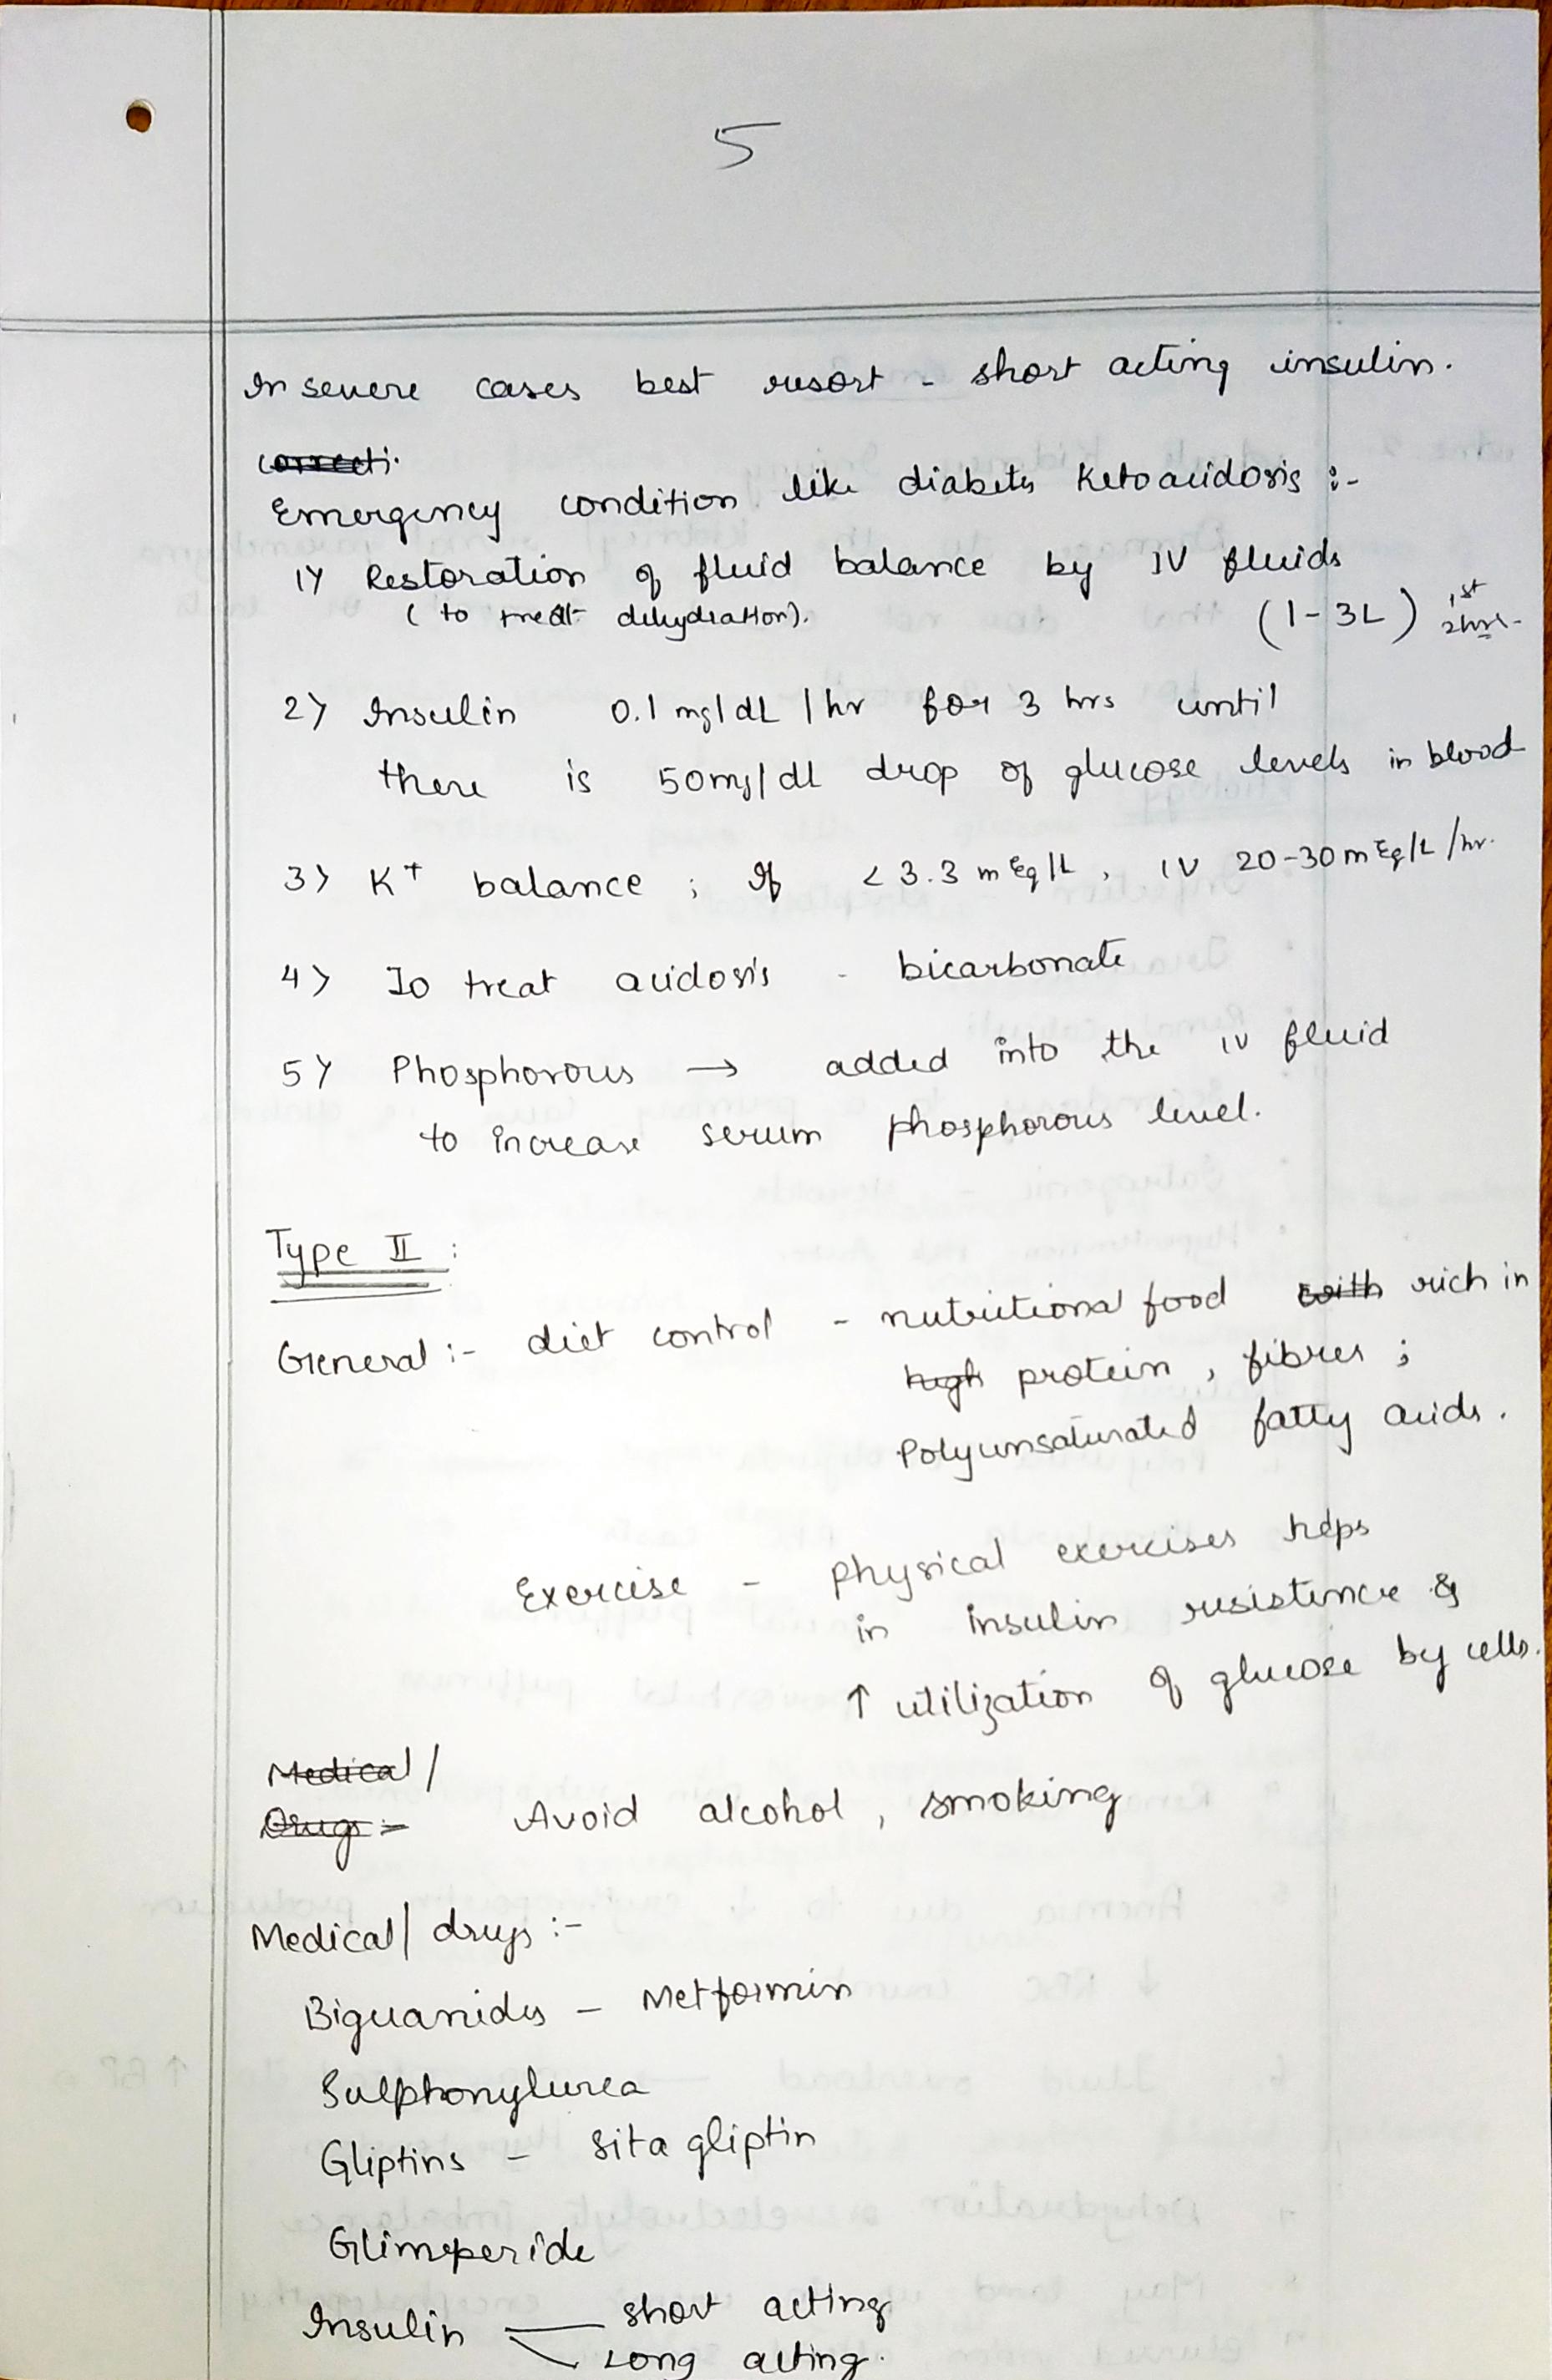 5
In severe cases best resort - short acting insulin.
correcti.
Emergency condition like diabetes Ketoacidosis :-
1) Restoration of fluid balance by IV fluids
(to treat dehydration). (1-3L) 1st 2hrs-
2) Insulin 0.1 mg/dL /hr for 3 hrs until
there is 50mg/dl drop of glucose levels in blood
3) K+ balance ; If < 3.3 mEq/L , IV 20-30 mEq/L /hr.
4) To treat acidosis - bicarbonate
5) Phosphorous → added into the IV fluid
to increase serum phosphorous level.
Type II :
General :- diet control - nutritional food with rich in
high protein , fibres ;
Polyunsaturated fatty acids.
Exercise - physical exercises helps
in insulin resistence &
↑ utilization of glucose by cells.
Medical /
Drugs :- Avoid alcohol , smoking
Medical/ drugs :-
Biguanides - Metformin
Sulphonylurea
Gliptins - Sitagliptin
Glimeperide
Insulin short acting
Long acting.